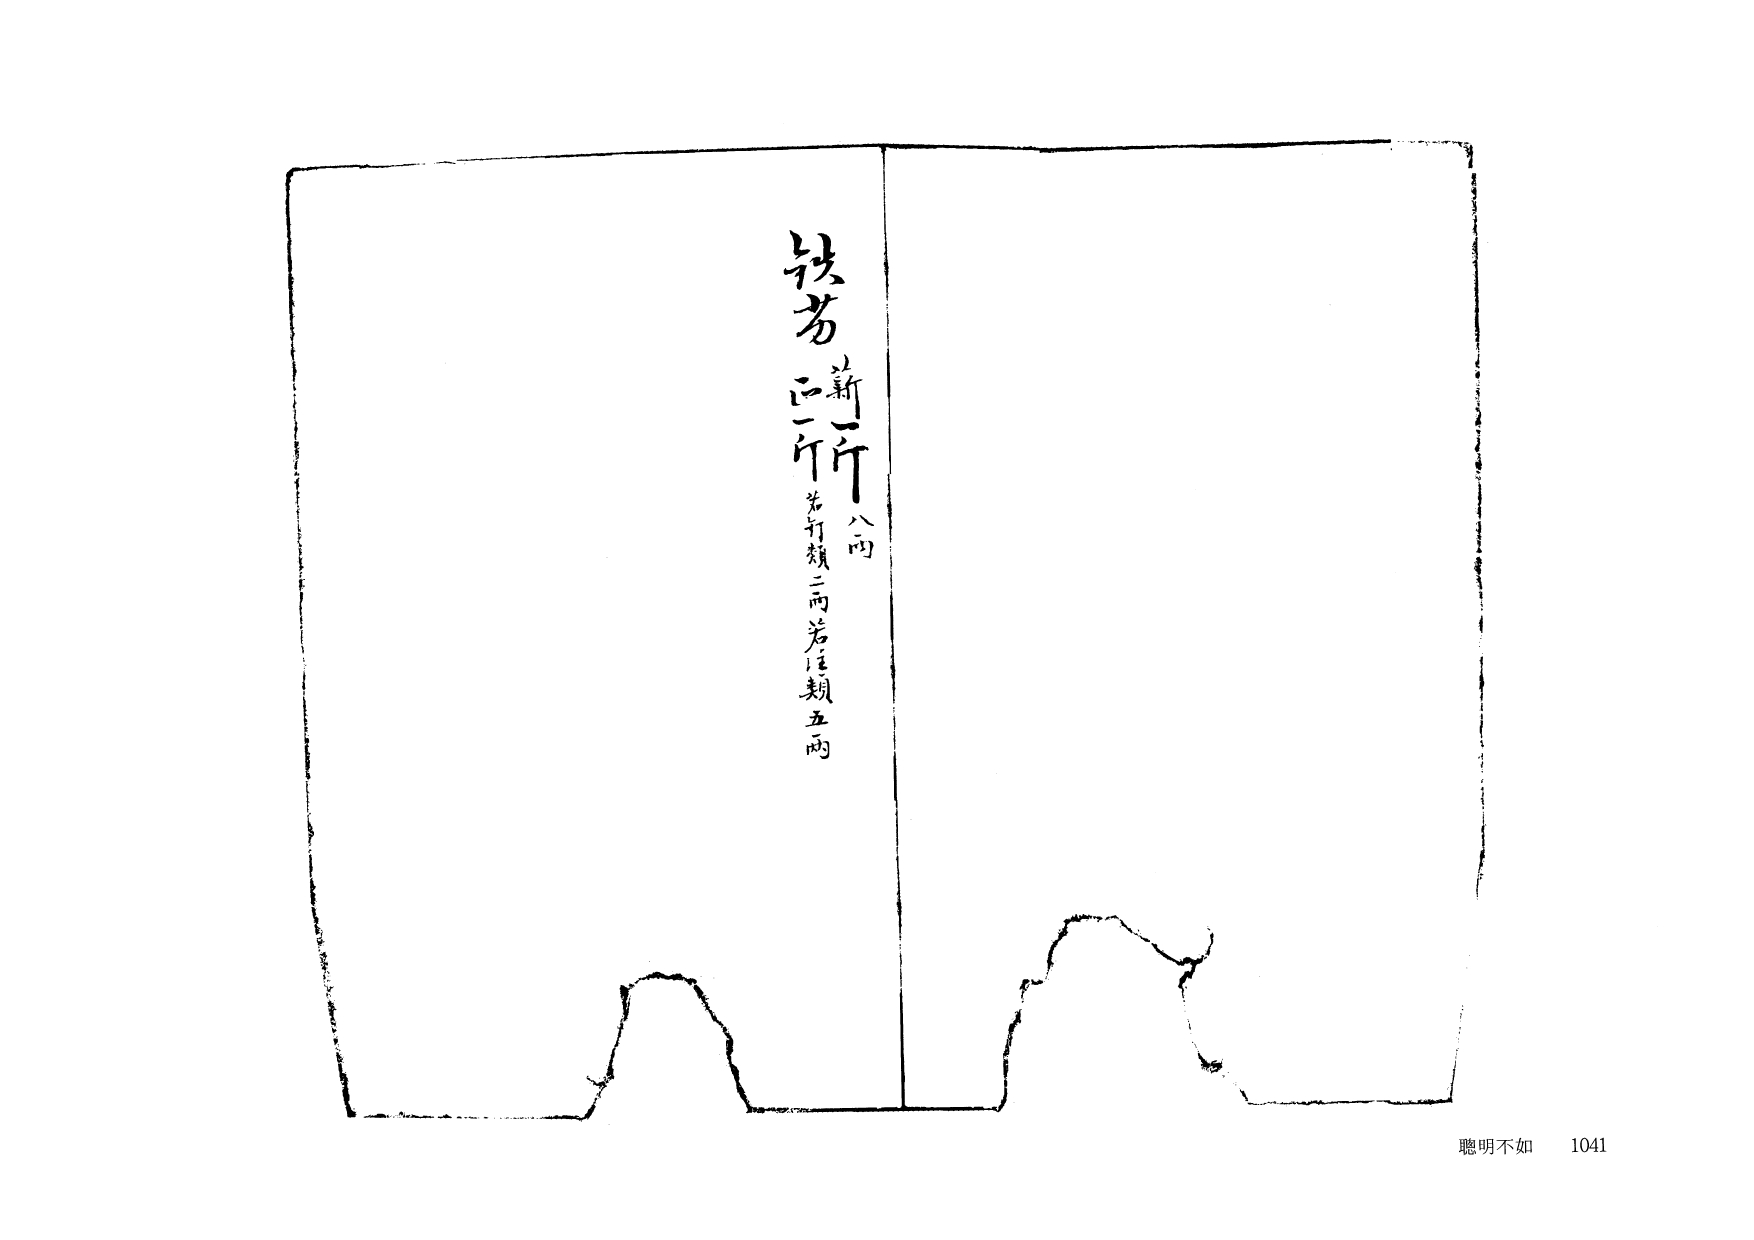 鉄劣
薪一斤 八兩
正一斤 若釘類二兩 若 類五兩
聰明不如 1041